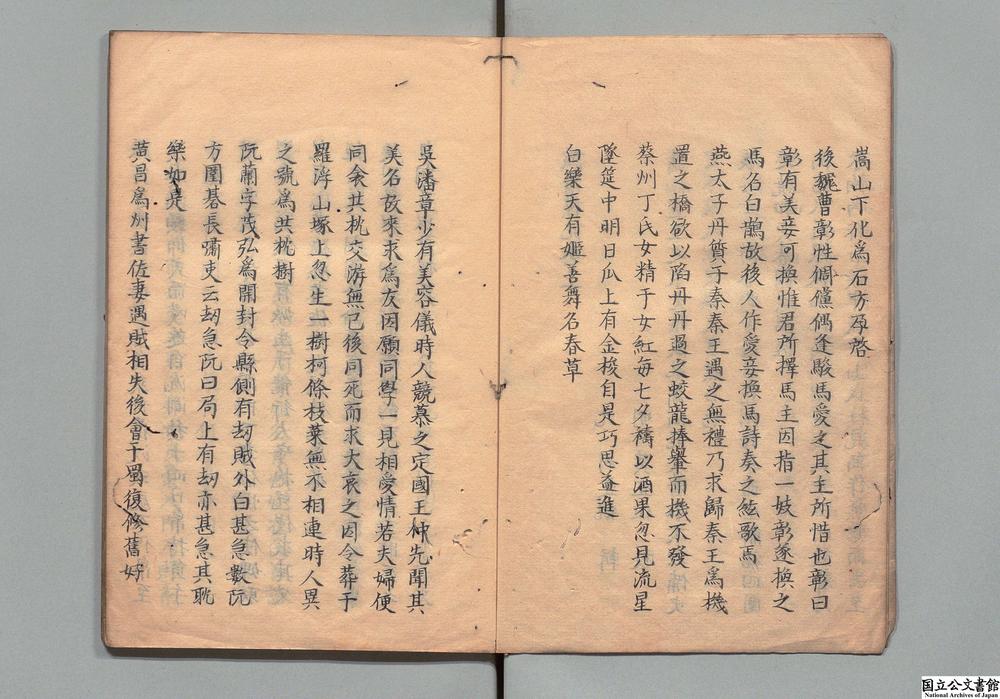 嵩山下化為石方孕啓
後魏曹彰性倜儻偶逢駿馬愛之其主所惜也彰曰
彰有美妾可換惟君所擇馬主因指一妓彰遂換之
馬名白鵲故後人作愛妾換馬詩奏之絃歌焉
燕太子丹質于秦秦王遇之無禮乃求歸秦王為機
置之橋欲以陷丹丹過之蛟龍捧轝而機不發
蔡州丁氏女精于女紅每七夕禱以酒果忽見流星
墜筵中明日瓜上有金梭自是巧思益進
白樂天有姬善舞名春草
吳潘章少有美容儀時人競慕之定國王仲先聞其
美名故來求為友因願同學一見相愛情若夫婦便
同衾共枕交游無已後同死而求大哀之因令葬于
羅浮山塚上忽生一樹柯條枝葉無不相連時人異
之號為共枕樹
阮蕳字茂弘為開封令縣側有刼賊外白甚急數阮
方圍碁長嘯吏云刼急阮曰局上有刼亦甚急其耽
樂如是
黃昌為州書佐妻遇賊相失後會于蜀復修舊好
国立公文書館
National Archives of Japan